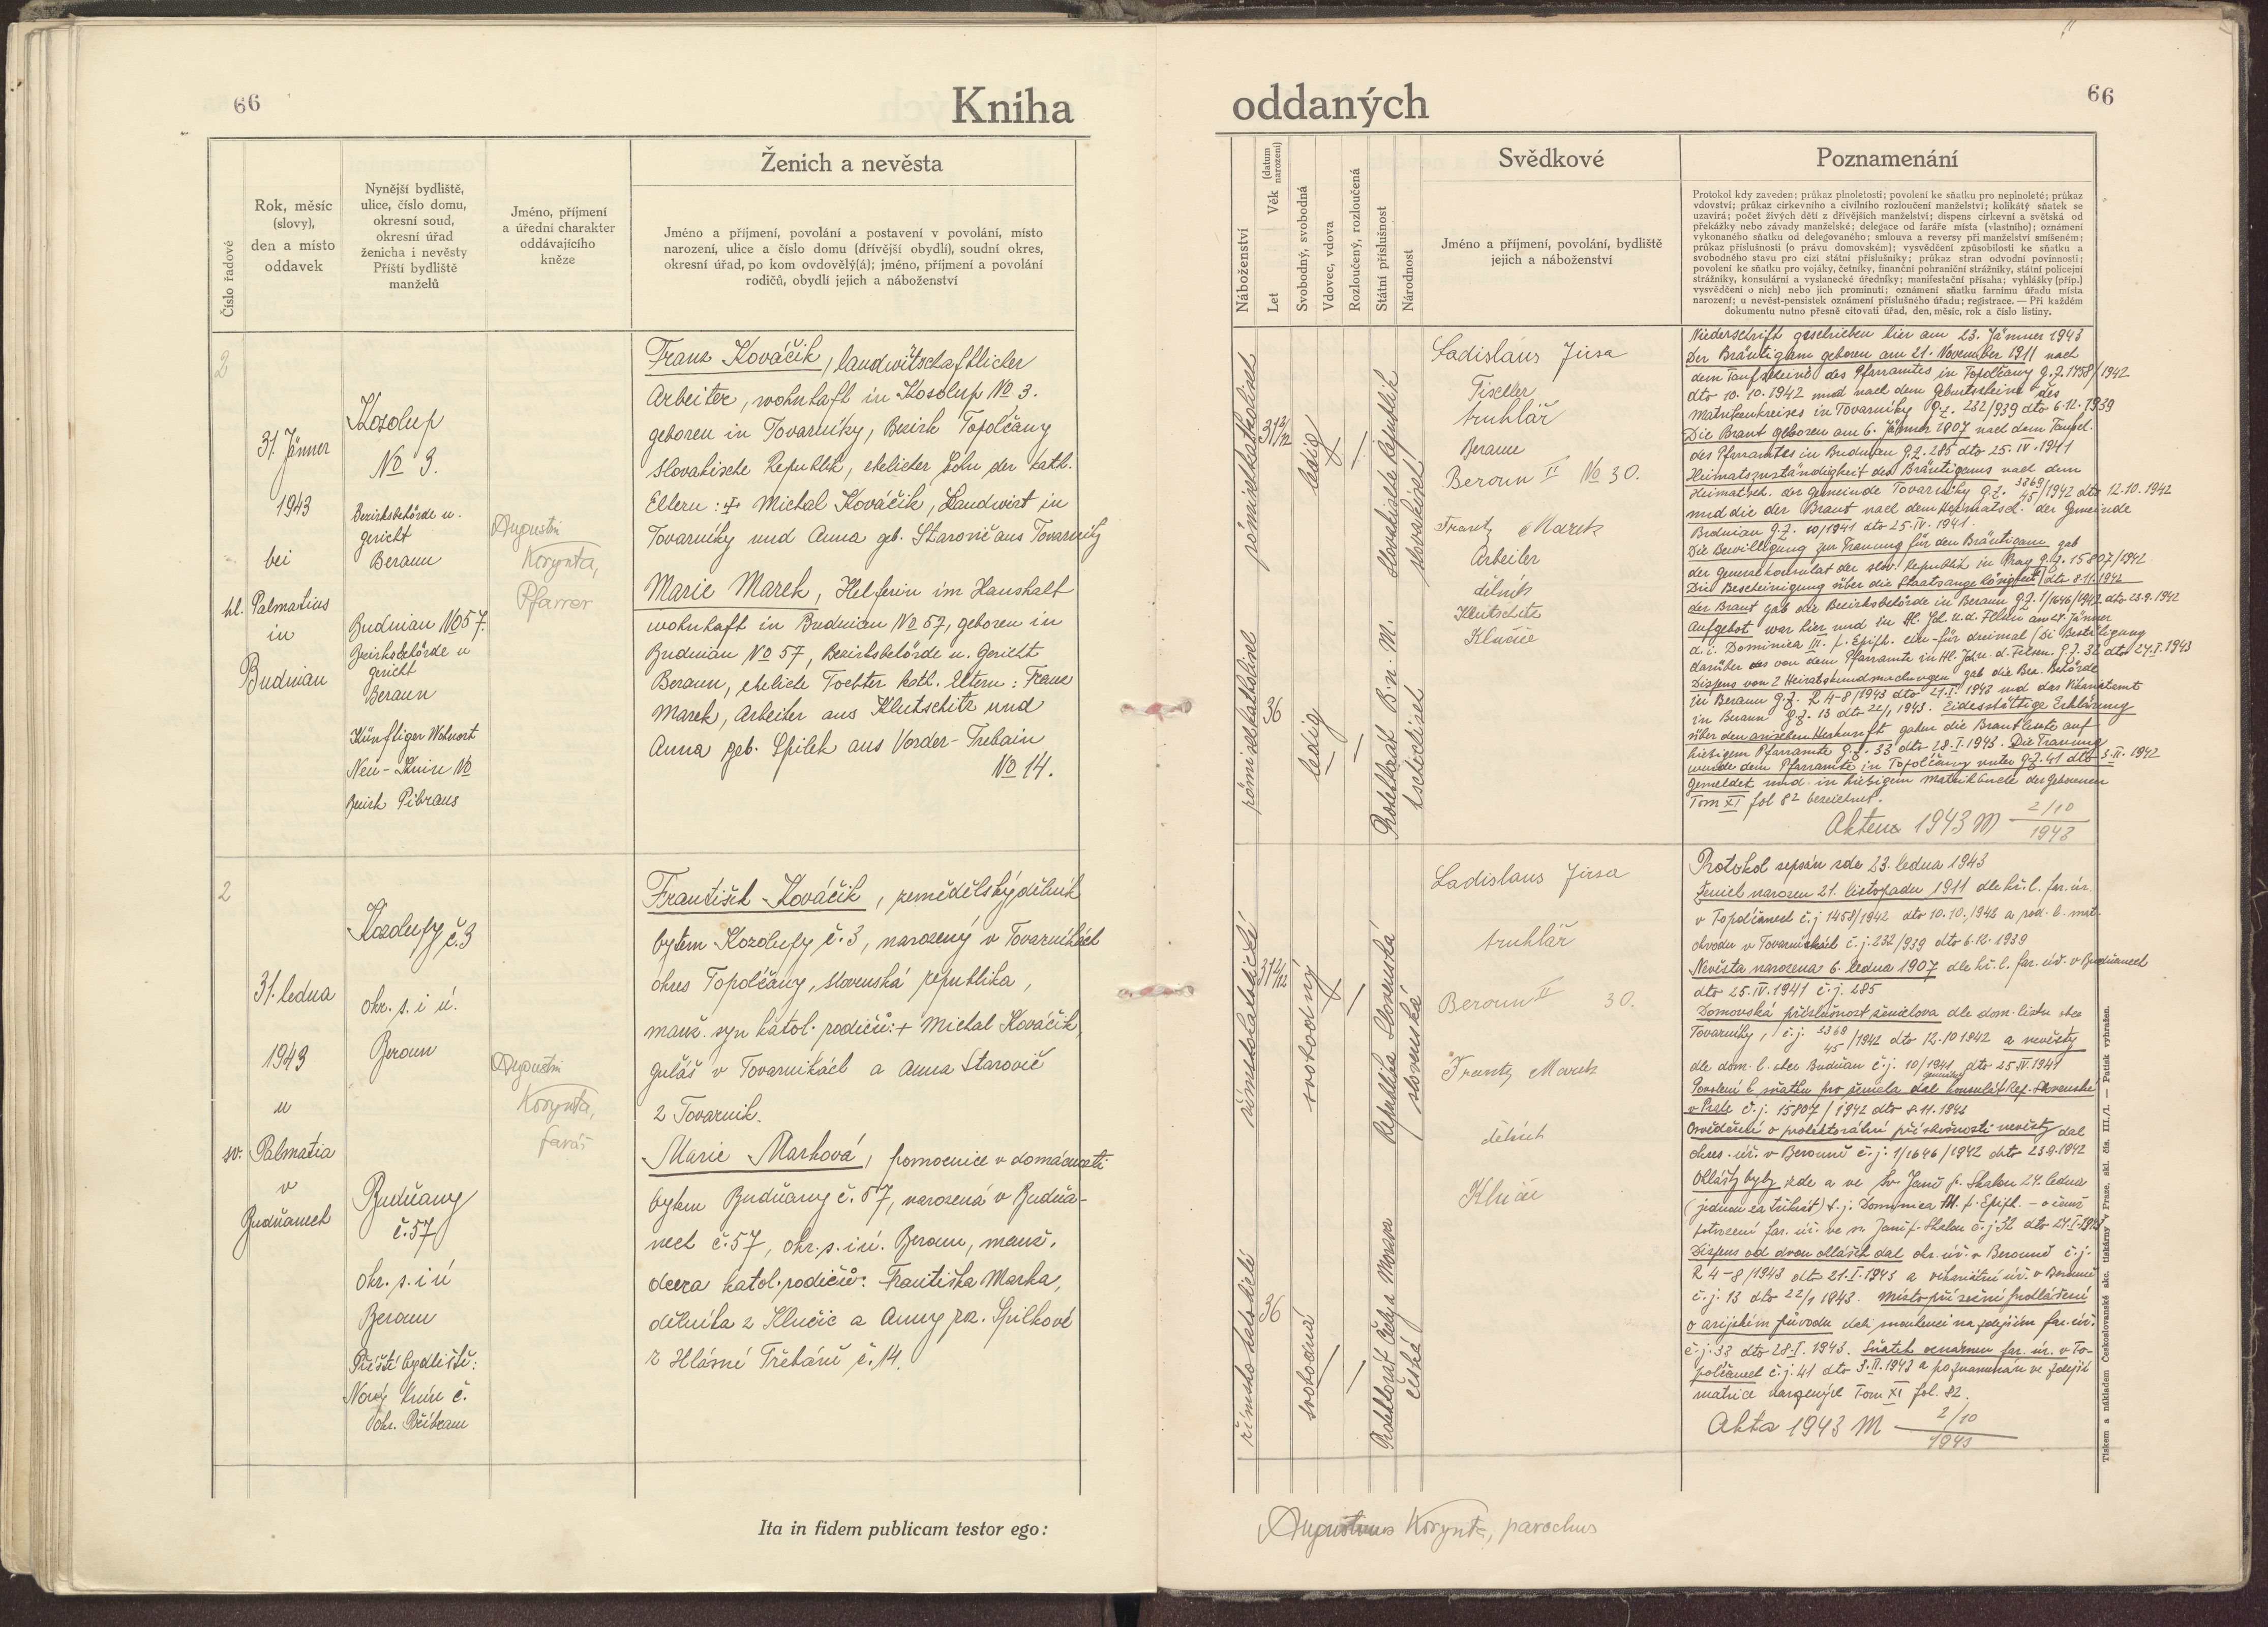 66
Kniha
Číslo řadové
Rok, měsíc
(slovy),
den a místo
oddavek
Nynější bydliště,
ulice, číslo domu,
okresní soud,
okresní úřad
ženicha i nevěsty
Příští bydliště
manželů
Jméno, příjmení
a úřední charakter
oddávajícího
kněze
Ženich a nevěsta
Jméno a příjmení, povolání a postavení v povolání, místo
narození, ulice a číslo domu (dřívější obydlí), soudní okres,
okresní úřad, po kom ovdovělý(á); jméno, příjmení a povolání
rodičů, obydlí jejich a náboženství
2
31. Jänner
1943
bei
hl. Palmatius
in
Budnian
Kosolup
No 3.
Bezirksbehörde u.
gericht
Beraun
Budnian No 57.
Bezirksbehörde u
gericht
Beraun
Künftiger Wohnort
Neu-Knin No
Bezirk Pibrans
Augustin
Korynta,
Pfarrer
Franz Kováčik, landwirtschaftlicher
Arbeiter, wohnhaft in Kosolup No 3.
geboren in Tovarníky, Bezirk Topolčany
Slovakische Republik, ehelicher Sohn der kath.
Eltern: + Michal Kováčik, Landwirt in
Tovarníky und Anna geb. Starovič aus Tovarníky
Marie Marek, Helferin im Haushalt
wohnhaft in Budnian No 57, geboren in
Budnian No 57, Bezirksbehörde u. Gericht
Beraun, eheliche Tochter kath. Eltern: Franz
Marek, Arbeiter aus Klutschitz und
Anna geb. Spilek aus Vorder-Trebain
No 14.
2
31. ledna
1943
u
sv. Palmatia
v
Budňanech
Kozolupy č. 3
okr. s. i ú.
Beroun
Budňany
č. 57
okr. s. i ú
Beroun
Příští bydliště:
Nový Knín č.
okr. Příbram
Augustin
Korynta,
farář
František Kováčik, zemědělský dělník
bytem Kozolupy č. 3, narozený v Tovarníkách
okres Topolčany, slovenská republika,
manž. syn katol. rodičů: + Michal Kováčik,
guláš v Tovarníkách a Anna Starovič
z Tovarník.
Marie Marková, pomocnice v domácnosti
bytem Budňany č. 57, narozená v Budňa-
nech č. 57, okr. s. i ú. Beroun, manž.
dcera katol. rodičů: Františka Marka,
dělníka z Klučic a Anny roz. Spilkové
z Hlásné Třebáně č. 14.
Ita in fidem publicam testor ego:
oddaných
66
Náboženství
Let Věk (datum narození)
Svobodný, svobodná
Vdovec, vdova
Rozloučený, rozloučená
Státní příslušnost
Národnost
Svědkové
Jméno a příjmení, povolání, bydliště
jejich a náboženství
Poznamenání
Protokol kdy zaveden; průkaz plnoletosti; povolení ke sňatku pro nepinoleté; průkaz
vdovství; průkaz církevního a civilního rozloučení manželství; kolikátý sňatek se
uzavírá; počet živých dětí z dřívějších manželství; dispens církevní a světská od
překážky nebo závady manželské; delegace od faráře místa (vlastního); oznámení
vykonaného sňatku od delegovaného; smlouva a reversy při manželství smíšeném;
průkaz příslušnosti (o právu domovském); vysvědčení způsobilosti ke sňatku a
svobodného stavu pro cizí státní příslušníky; průkaz stran odvodní povinnosti;
povolení ke sňatku pro vojáky, četníky, finanční pohraniční strážníky, státní policejní
strážníky, konsulární a vyslanecké úředníky; manifestační přísaha; vyhlášky (příp.)
vysvědčení o nich) nebo jich prominutí; oznámení sňatku farnímu úřadu místa
narození; u nevěst-pensistek oznámení příslušného úřadu; registrace. — Při každém
dokumentu nutno přesně citovati úřad, den, měsíc, rok a číslo listiny.
römischkatholisch
31 2/12
ledig
Slovakische Republik
slovakisch
römischkatholisch
36
ledig
Protektorat B. n. M.
tschechisch
Ladislaus Jirsa
Tischler
truhlář
Beraun
Beroun II No 30.
Frantz Marek
Arbeiter
dělník
Klutschitz
Klučice
Niederschrift geschrieben hier am 23. Jänner 1943
Der Bräutigam geboren am 21. November 1911 nach
dem Taufscheine des Pfarramtes in Topolčany G.Z. 1458/1942
dto 10.10.1942 und nach dem Geburtsscheine des
Matrikenkreises in Tovarníky G.Z. 232/939 dto 6.12.1939
Die Braut geboren am 6. Jänner 1907 nach dem Taufsch.
des Pfarramtes in Budnian G.Z. 285 dto 25.IV.1941
Heimatszuständigkeit des Bräutigams nach dem
Heimatsch. der Gemeinde Tovarníky G.Z. 3369/45/1942 dto 12.10.1942
und die der Braut nach dem Heimatsch. der Gemeinde
Budnian G.Z. 10/1941 dto 25.IV.1941.
Die Bewilligung zur Trauung für den Bräutigam gab
der Generalkonsulat der slov. Republik in Prag G.Z. 15807/1942
Die Bescheinigung über die Staatsangehörigkeit dto 8.11.1942
der Braut gab die Bezirksbehörde in Beraun G.Z. 1/1646/1942 dto 23.9.1942
Aufgebot war hier und in Hl. Joh. u. d. Felsen am 24. Jänner
d. i. Dominica III. p. Epiph. ein-für dreimal (di Bestätigung
darüber von dem Pfarramte in Hl. Joh. u. d. Felsen. G.Z. 32 dto 24.I.1943
Dispens von 2 Heiratskundmachungen gab die Bez. Behörde
in Beraun G.Z. R 4-8/1943 dto 21.I. 1943 und das Vikariatamt
in Beraun G.Z. 13 dto 22/1 1943. Eidesstättige Erklärung
über den arischen Herkunft gaben die Brautleute auf
hiesigem Pfarramte G.Z. 33 dto 28.I.1943. Die Trauung
wurde dem Pfarramte in Topolčany unter G.Z. 41 dto 3.II. 1942
gemeldet und in hiesigem Matrikbuche der Geborenen
Tom XI fol 82 bezeichnet.
Akten 1943 M 2/10
1943
římskokatolické
31 2/12
svobodný
Republika Slovenská
slovenská
římskokatolické
36
svobodná
Protektorát Čechy a Morava
česká
Ladislaus Jirsa
truhlář
Beroun II 30.
Frantz Marek
dělník
Protokol sepsán zde 23. ledna 1943
Ženich narozen 21. listopadu 1911 dle kř. l. far. úř.
v Topolčanech č.j. 1458/1942 dto 10.10.1942 a rod. l. mat.
obvodu v Tovarníkách č.j. 232/939 dto 6.12.1939
Nevěsta narozena 6. ledna 1907 dle kř. l. far. úř. v Budňanech
dto 25.IV.1941 č.j. 285
Domovská příslušnost ženichova dle dom. listu obce
Tovarníky, č.j. 3369/45/1942 dto 12.10 1942 a nevěsty
dle dom. l. obce Budňan č.j. 10/1941 dto 25.IV.1941
Povolení k sňatku pro ženicha dal generální konsulát Rep. Slovenské
v Praze č.j. 15807/1942 dto 8.11.1942
Osvědčení o protektorátní příslušnosti nevěsty dal
okres. úř. v Berouně č.j. 1/1646/1942 dto 23.9.1942
Ohlášky byly zde a ve Sv. Janě p. Skalou 24. ledna
(jednou za třikrát) t.j. Dominica III. p. Epiph. – o čemž
potvrzení far. úř. ve sv. Janě p. Skalou č.j 32 dto 24.I.1943
Dispens od dvou ohlášek dal okr. úř. v Berouně č.j.
R 4-8/1943 dto 21.I.1943 a vikariátní úř. v Berouně
č.j. 13 dto 22/1 1943. Místopřísežné prohlášení
o arijském původu dali snoubenci na zdejším far. úř.
č.j. 33 dto 28.I. 1943. Sňatek oznámen far. úř. v To-
polčanech č.j. 41 dto 3.II.1943 a poznamenán ve zdejší
matrice narozených Tom XI fol. 82.
Akta 1943 M 2/10
1943
Tiskem a nákladem Československé akc. tiskárny v Praze, skl. čís. III./1. — Patisk vyhražen.
Augustinus Korynta, parochus